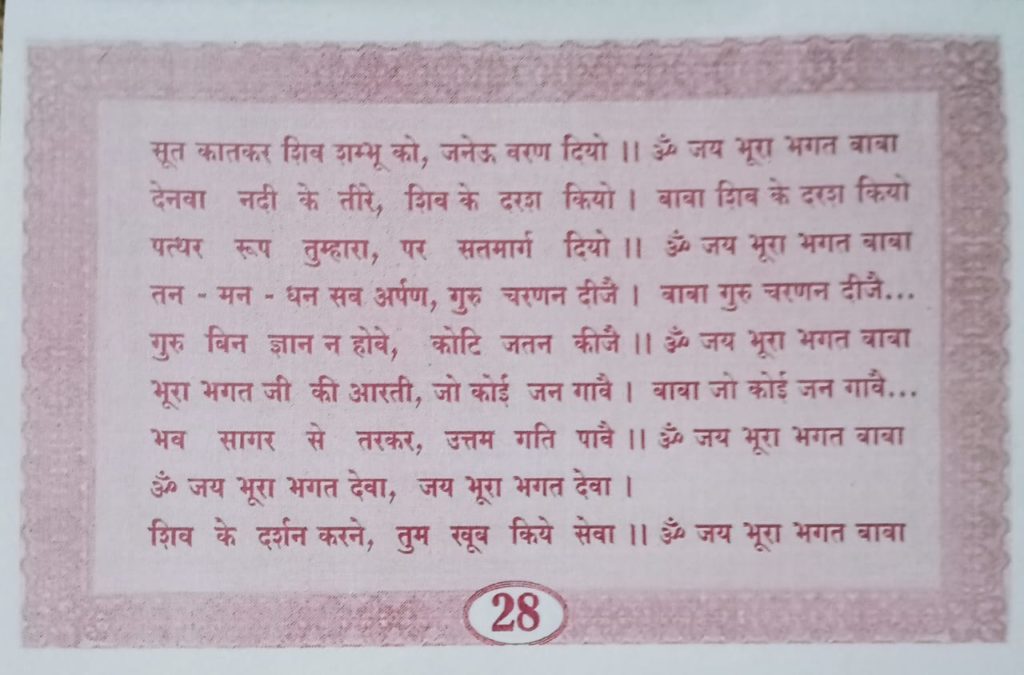 सूत कातकर शिव शम्भू को, जनेऊ वरण दियो ।। ॐ जय भूरा भगत बाबा
देनवा नदी के तीरे, शिव के दरश कियो । बाबा शिव के दरश कियो
पत्थर रूप तुम्हारा, पर सतमार्ग दियो ।। ॐ जय भूरा भगत बाबा
तन - मन - धन सब अर्पण, गुरु चरणन दीजै । बाबा गुरु चरणन दीजै...
गुरु बिन ज्ञान न होवे, कोटि जतन कीजै ।। ॐ जय भूरा भगत बाबा
भूरा भगत जी की आरती, जो कोई जन गावै । बाबा जो कोई जन गावै...
भव सागर से तरकर, उत्तम गति पावै ।। ॐ जय भूरा भगत बाबा
ॐ जय भूरा भगत देवा, जय भूरा भगत देवा ।
शिव के दर्शन करने, तुम खूब किये सेवा ।। ॐ जय भूरा भगत बाबा
28